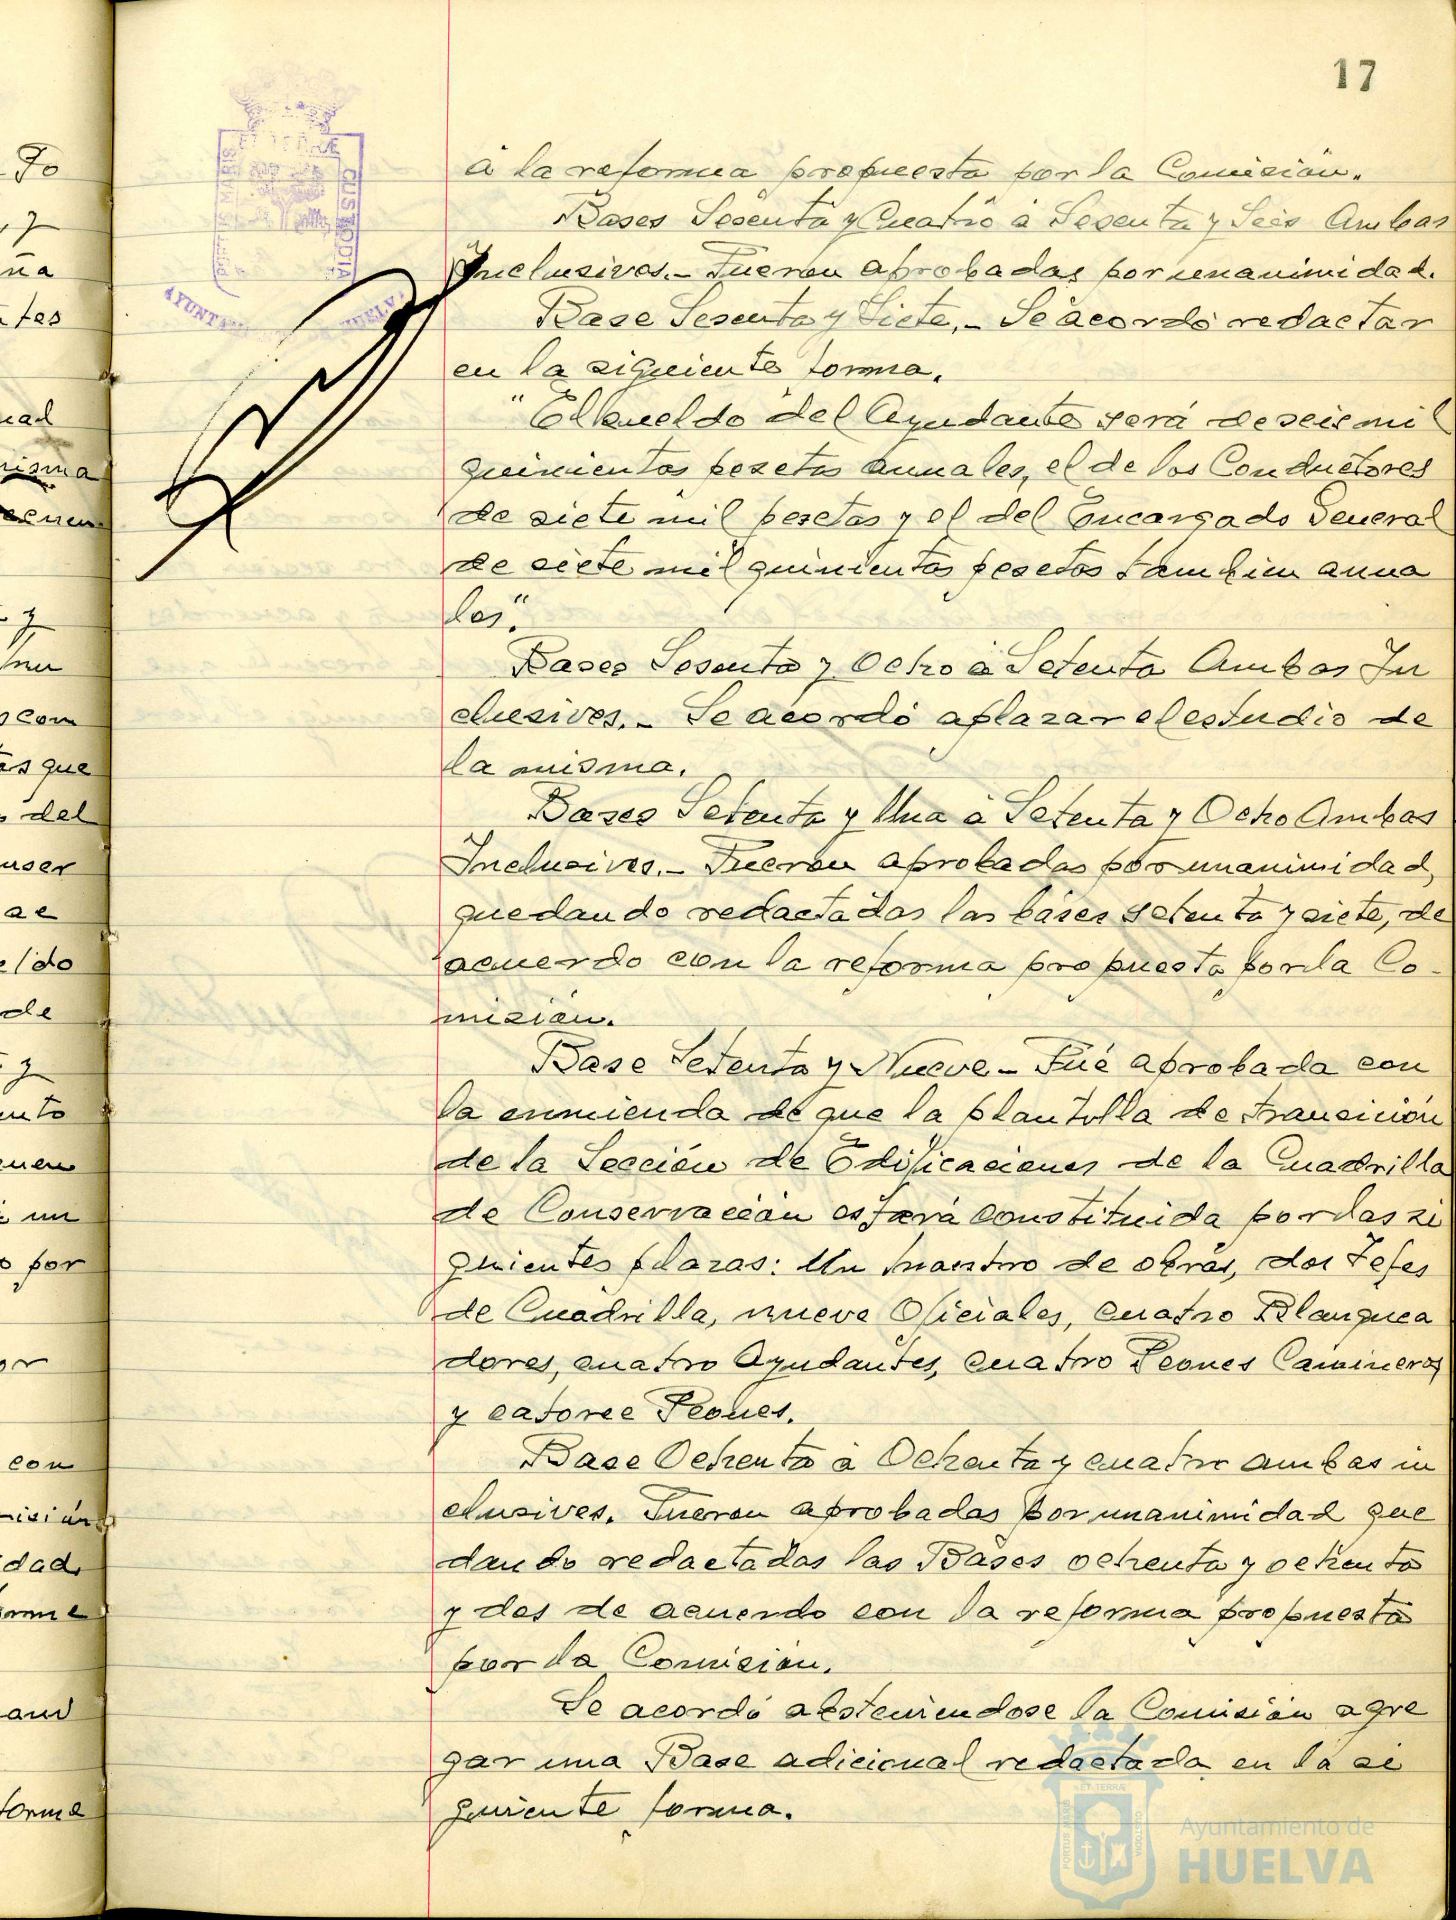 17
à la reforma propuesta por la Comisión.
Bases Sesenta y Cuatro à Sesenta y Seis Ambas
Inclusives.- Fueron aprobadas por unanimidad.
Base Sesenta y Siete.- Se acordó redactar
en la siguiente forma.
"El sueldo del Ayudante será de seis mil
quinientas pesetas anuales, el de los Conductores
de siete mil pesetas y el del Encargado General
de siete mil quinientas pesetas tambien anua
les".
Bases Sesenta y Ocho à Setenta Ambas In
clusives.- Se acordó aplazar el estudio de
la misma.
Bases Setenta y Una à Setenta y Ocho Ambas
Inclusives.- Fueron aprobadas por unanimidad,
quedando redactadas las bases setenta y siete, de
acuerdo con la reforma propuesta por la Co-
misión.
Base Setenta y Nueve- Fué aprobada con
la enmienda de que la plantilla de transición
de la Sección de Edificaciones de la Cuadrilla
de Conservación estará constituida por las si
guientes plazas: Un Maestro de obras, dos Jefes
de Cuadrilla, nueve Oficiales, cuatro Blanquea
dores, cuatro Ayudantes, cuatro Peones Camineros
y catorce Peones.
Base Ochenta à Ochenta y cuatro ambas in
clusives. Fueron aprobadas por unanimidad que
dando redactadas las Bases ochenta y ochenta
y dos de acuerdo con la reforma propuesta
por la Comisión.
Se acordó absteniendose la Comisión agre
gar una Base adicional redactada en la si
guiente forma.
PORTUS MARIS
ET TERRAE
CUSTODIA
AYUNTAMIENTO DE HUELVA
To
y
ña
tes
ual
misma
y
com
que
del
user
ae
eldo
de
y
ento
un
o por
or
con
misión
dad,
orme
and
forme
PORTUS MARIS
ET TERRÆ
CUSTODIA
Ayuntamiento de
HUELVA